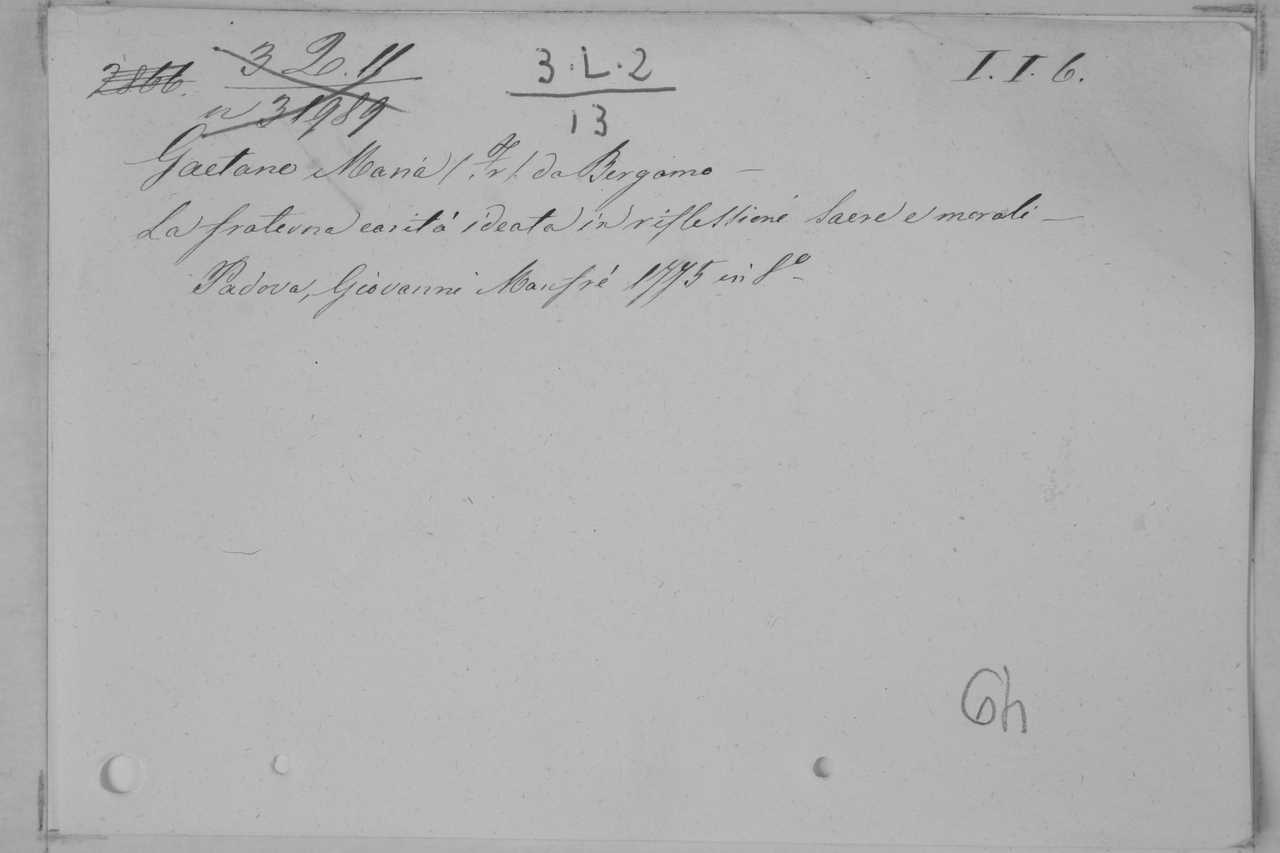 2866. 3 L. 11 3·L·2 I. I. 6.
n 31989 13
Gaetano Maria (Fr.) da Bergamo —
La fraterna carità ideata in riflessioni sacre e morali —
Padova, Giovanni Manfrè 1775 in 8º
Gh